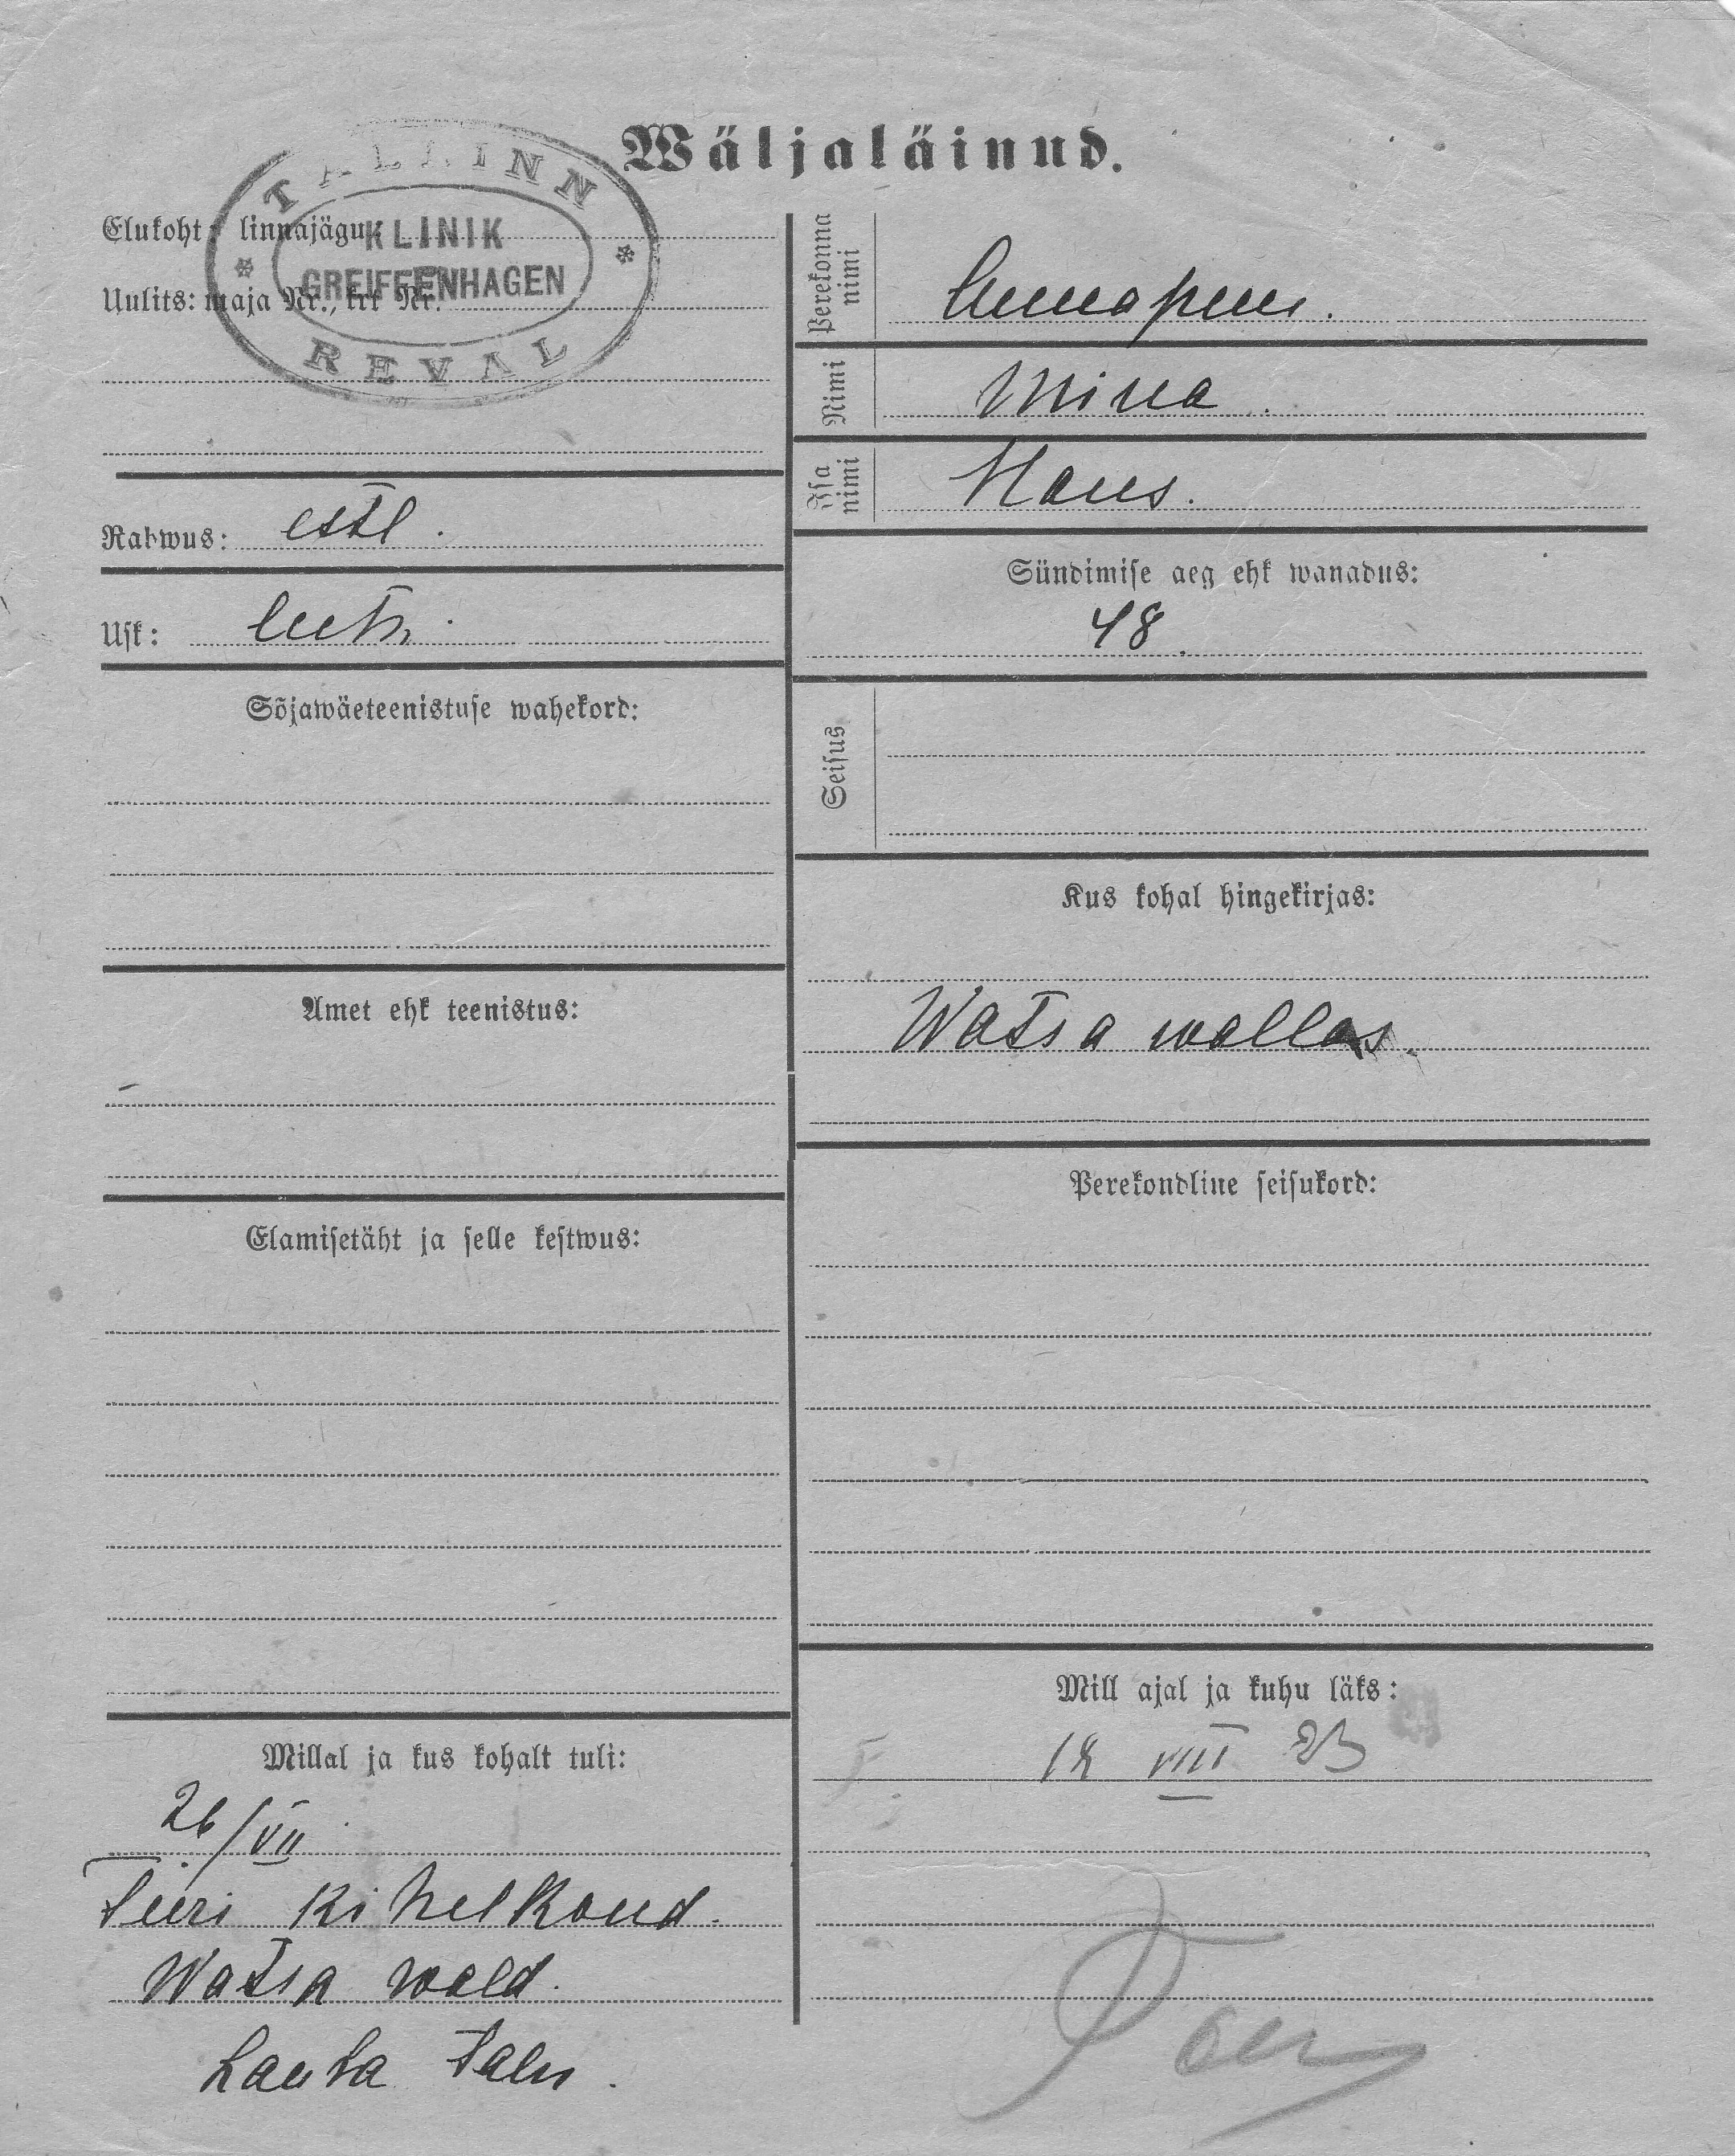 Wäljaläinud.
TALLINN
KLINIK
GREIFFENHAGEN
REVAL
Elukoht: linnajagu
Uulits: maja Nr., krt Nr.
Rahwus: estl.
Usk: luth.
Sõjawäeteenistuse wahekord:
Amet ehk teenistus:
-
Elamisetäht ja selle kestwus:
Millal ja kus kohalt tuli:
26/VII
Türi Kihelkond.
Watsa wald.
Lauta talu.
Perekonna nimi
Nimi Mina
Isa nimi Hans.
Sündimise aeg ehk wanadus:
48.
Seisus
Kus kohal hingekirjas:
Watsa wallas.
Perekondline seisukord:
Mill ajal ja kuhu läks:
18 VIII 23